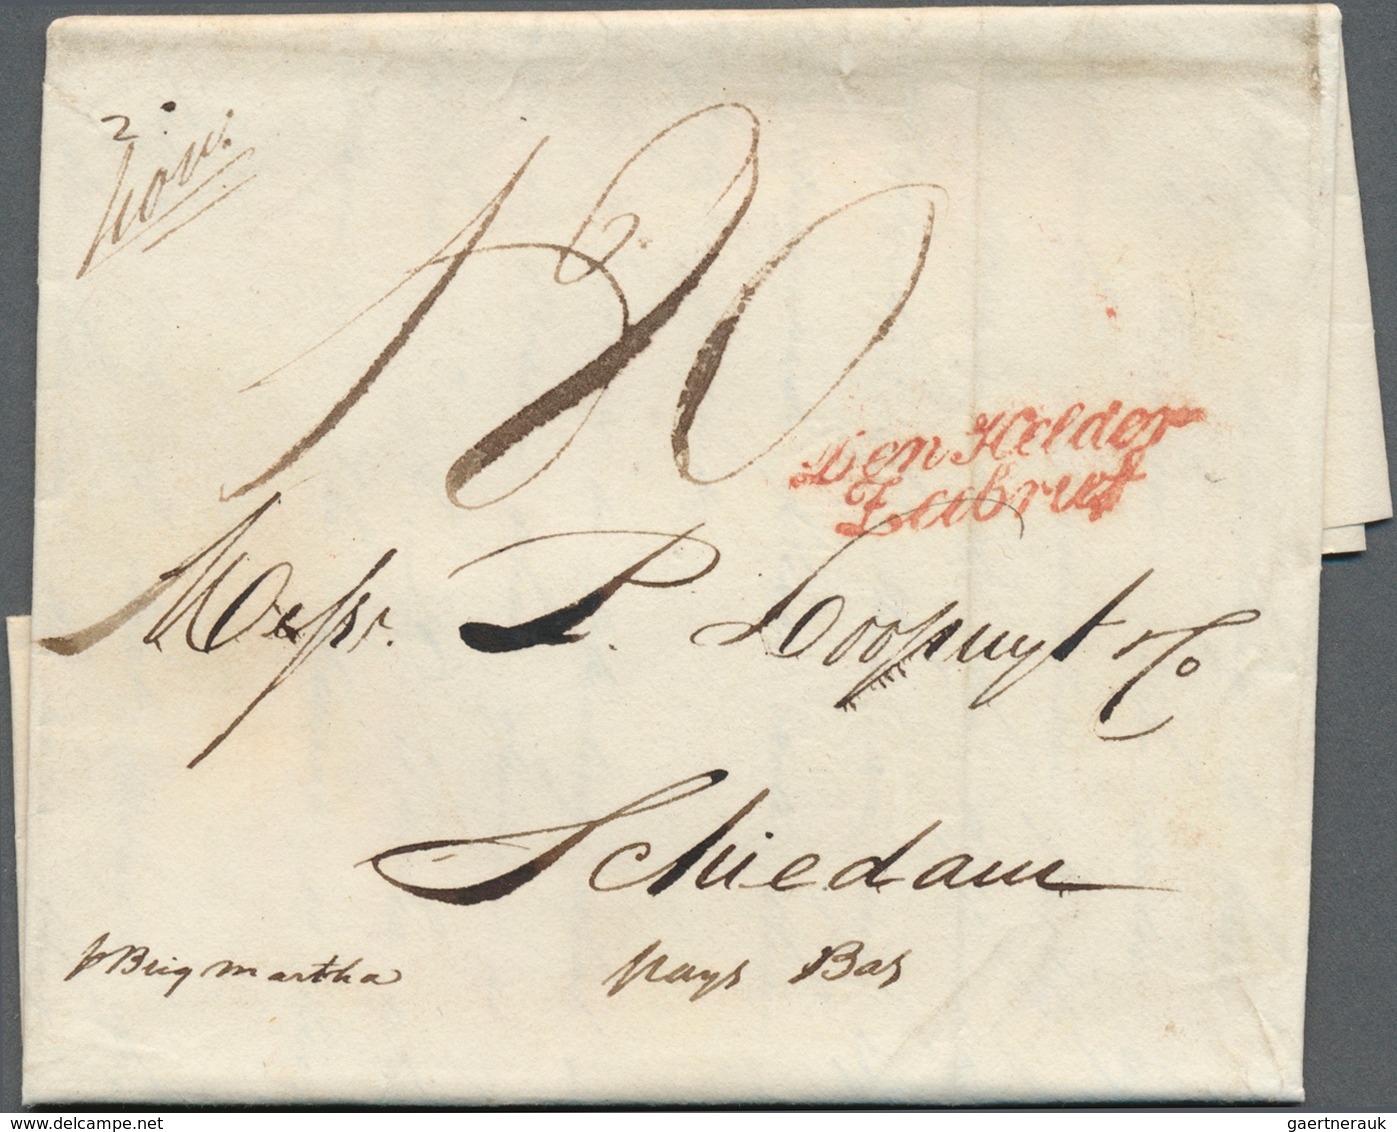 2
180
Den Helder
Zeebrief
Messr. P. Loopuyt & Co
Schiedam
p Brig Martha
pays Bas
delcampe.net
gaertnerauk